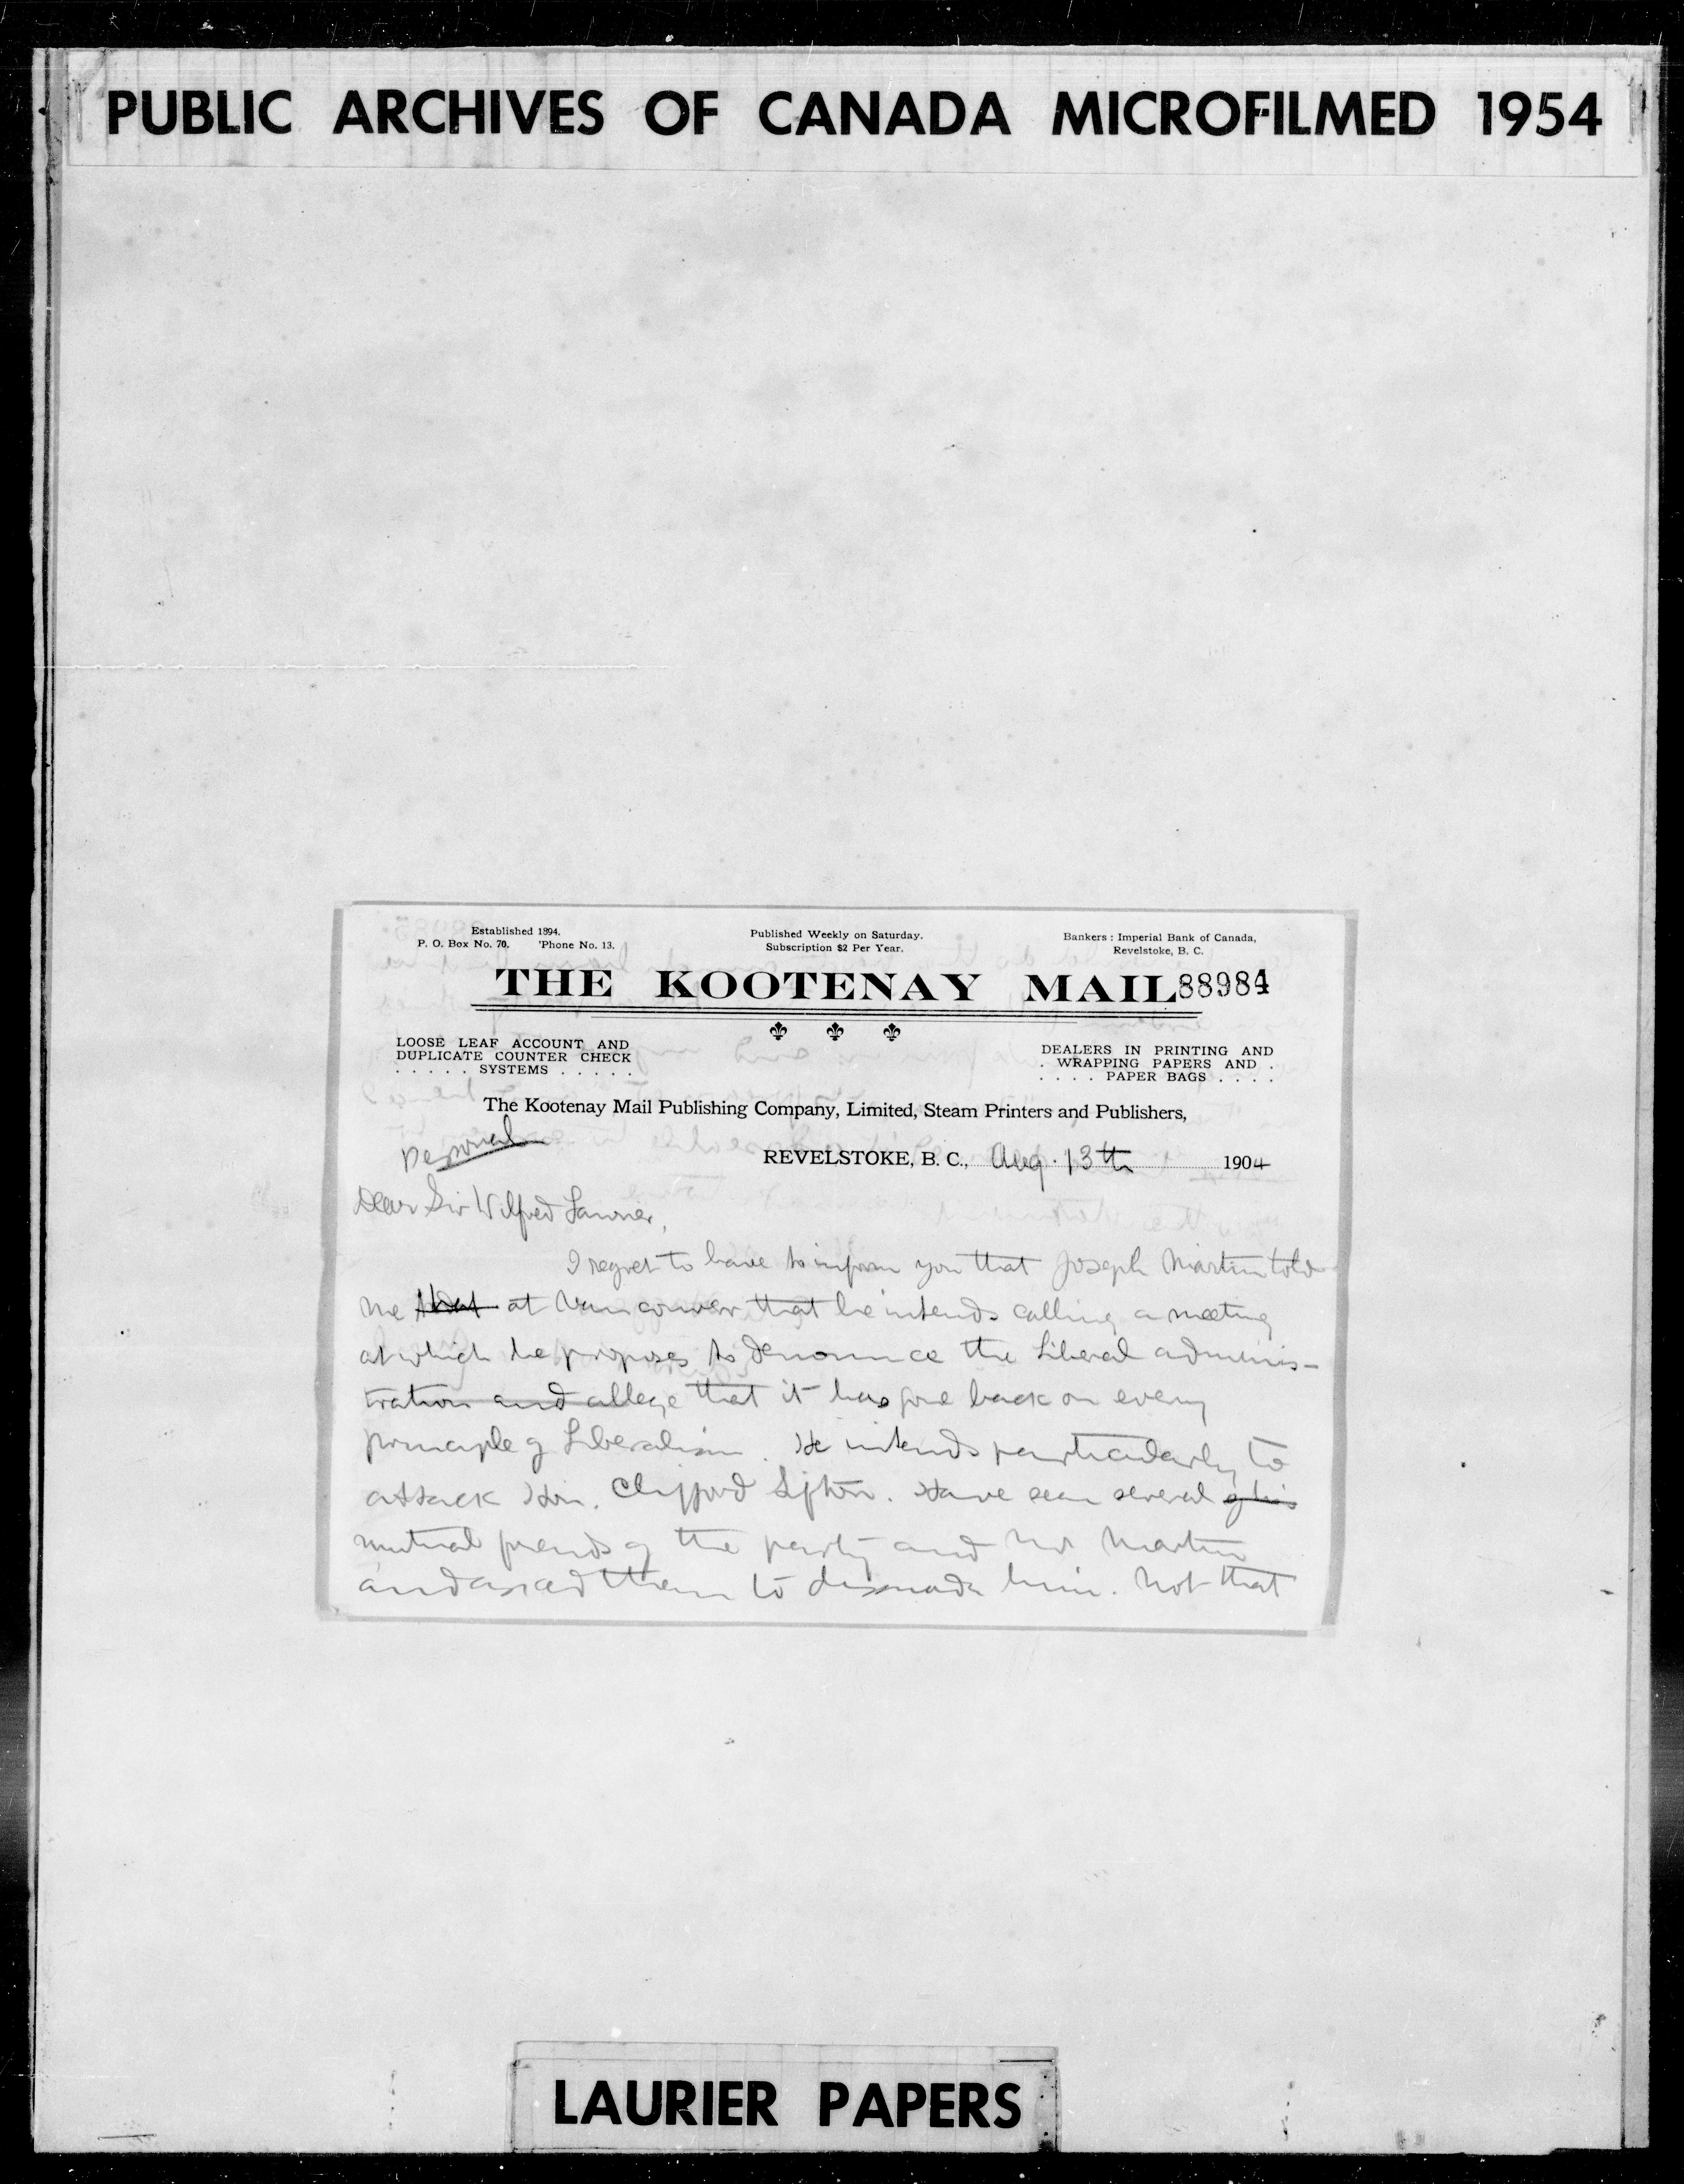 PUBLIC ARCHIVES OF CANADA MICROFILMED 1954
Established 1894.
P. O. Box No. 70. 'Phone No. 13.
Published Weekly on Saturday.
Subscription $2 Per Year.
Bankers : Imperial Bank of Canada,
Revelstoke, B. C.
THE KOOTENAY MAIL
88984
LOOSE LEAF ACCOUNT AND
DUPLICATE COUNTER CHECK
. . . . . SYSTEMS . . . . .
DEALERS IN PRINTING AND
. WRAPPING PAPERS AND .
. . . . PAPER BAGS . . . .
The Kootenay Mail Publishing Company, Limited, Steam Printers and Publishers,
Personal
REVELSTOKE, B. C., Aug. 13th 1904
Dear Sir Wilfred Laurier,
I regret to have to inform you that Joseph Martin told
me that at Vancouver that he intends calling a meeting
at which he proposes to denounce the Liberal adminis-
tration and allege that it has gone back on every
principle of Liberalism. He intends particularly to
attack Hon. Clifford Sifton. Have seen several of his
mutual friends of the party and Mr Martin
and asked them to dissuade him. Not that
LAURIER PAPERS